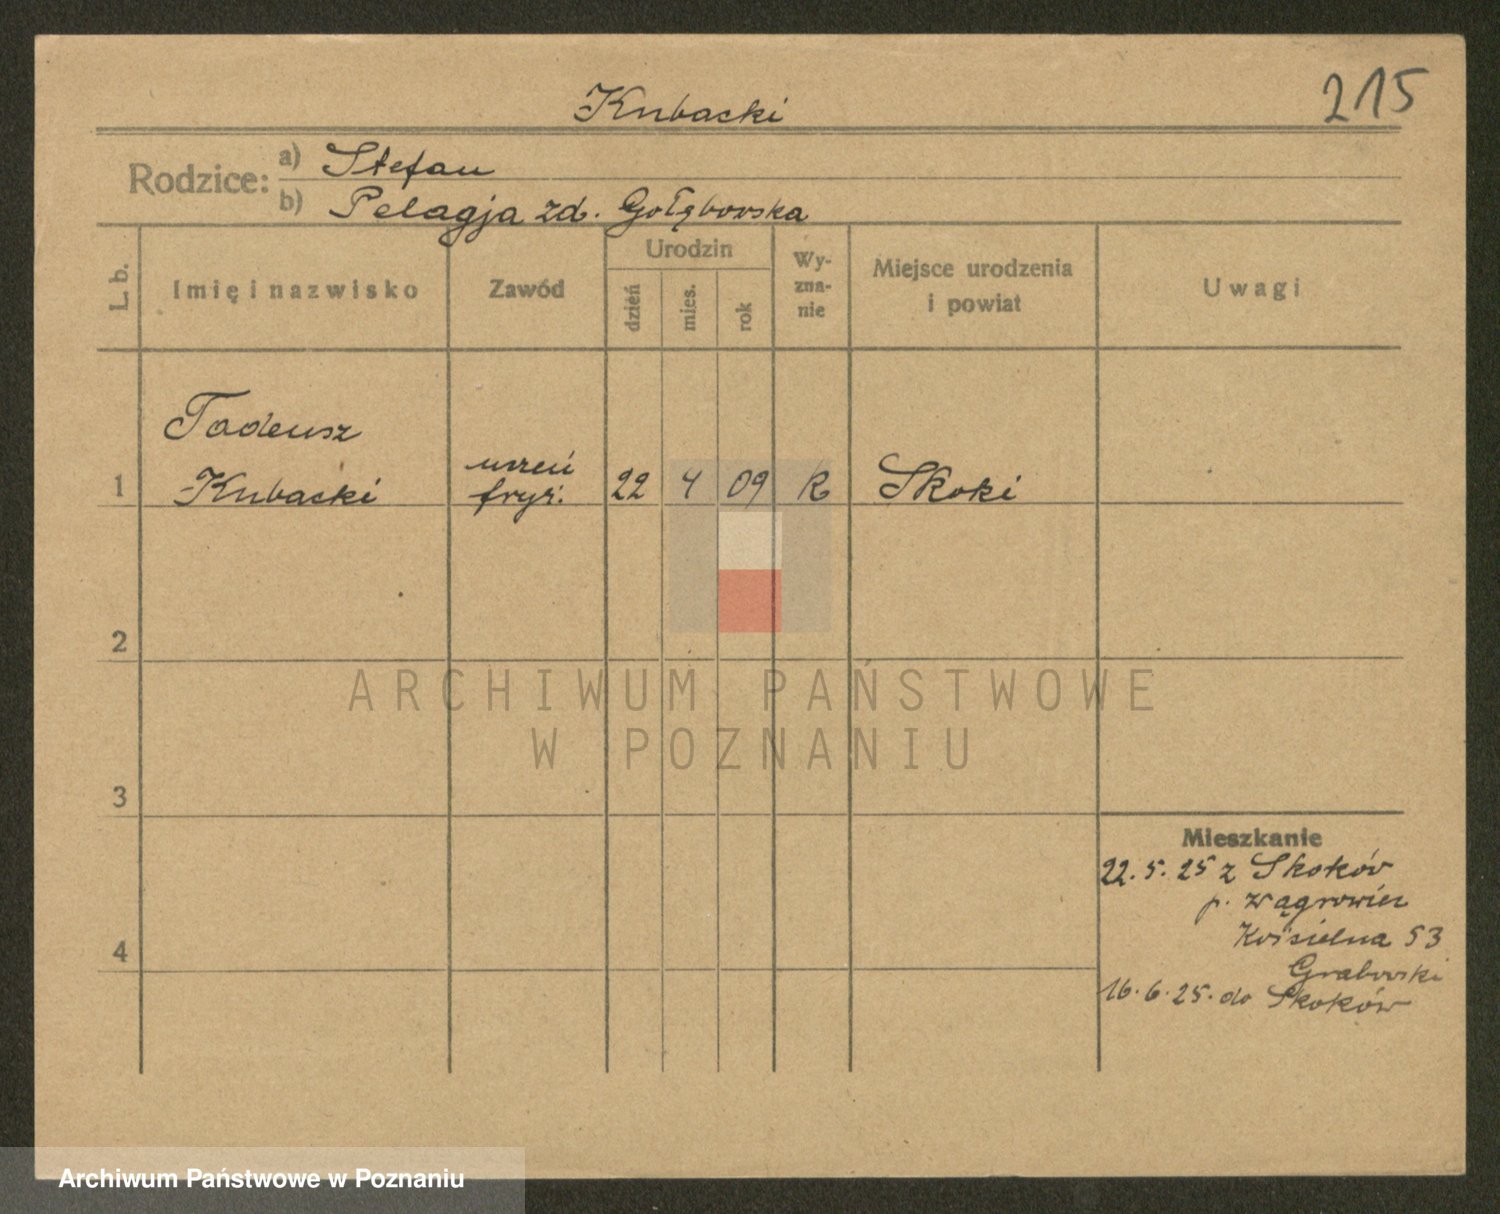 215
Kubacki
Rodzice: a) Stefan
b) Pelagja zd. Gołębowska
L. b.
Imię i nazwisko
Zawód
Urodzin
dzień
mies.
rok
Wy-
zna-
nie
Miejsce urodzenia
i powiat
Uwagi
Tadeusz
1 Kubacki
uczeń
fryz. 22 4 09 k Skoki
2
3
4
ARCHIWUM PAŃSTWOWE
W POZNANIU
Mieszkanie
22. 5. 25 z Skoków
p. Wągrowiec
Kościelna 53
Grabowski
16. 6. 25. do Skoków
Archiwum Państwowe w Poznaniu